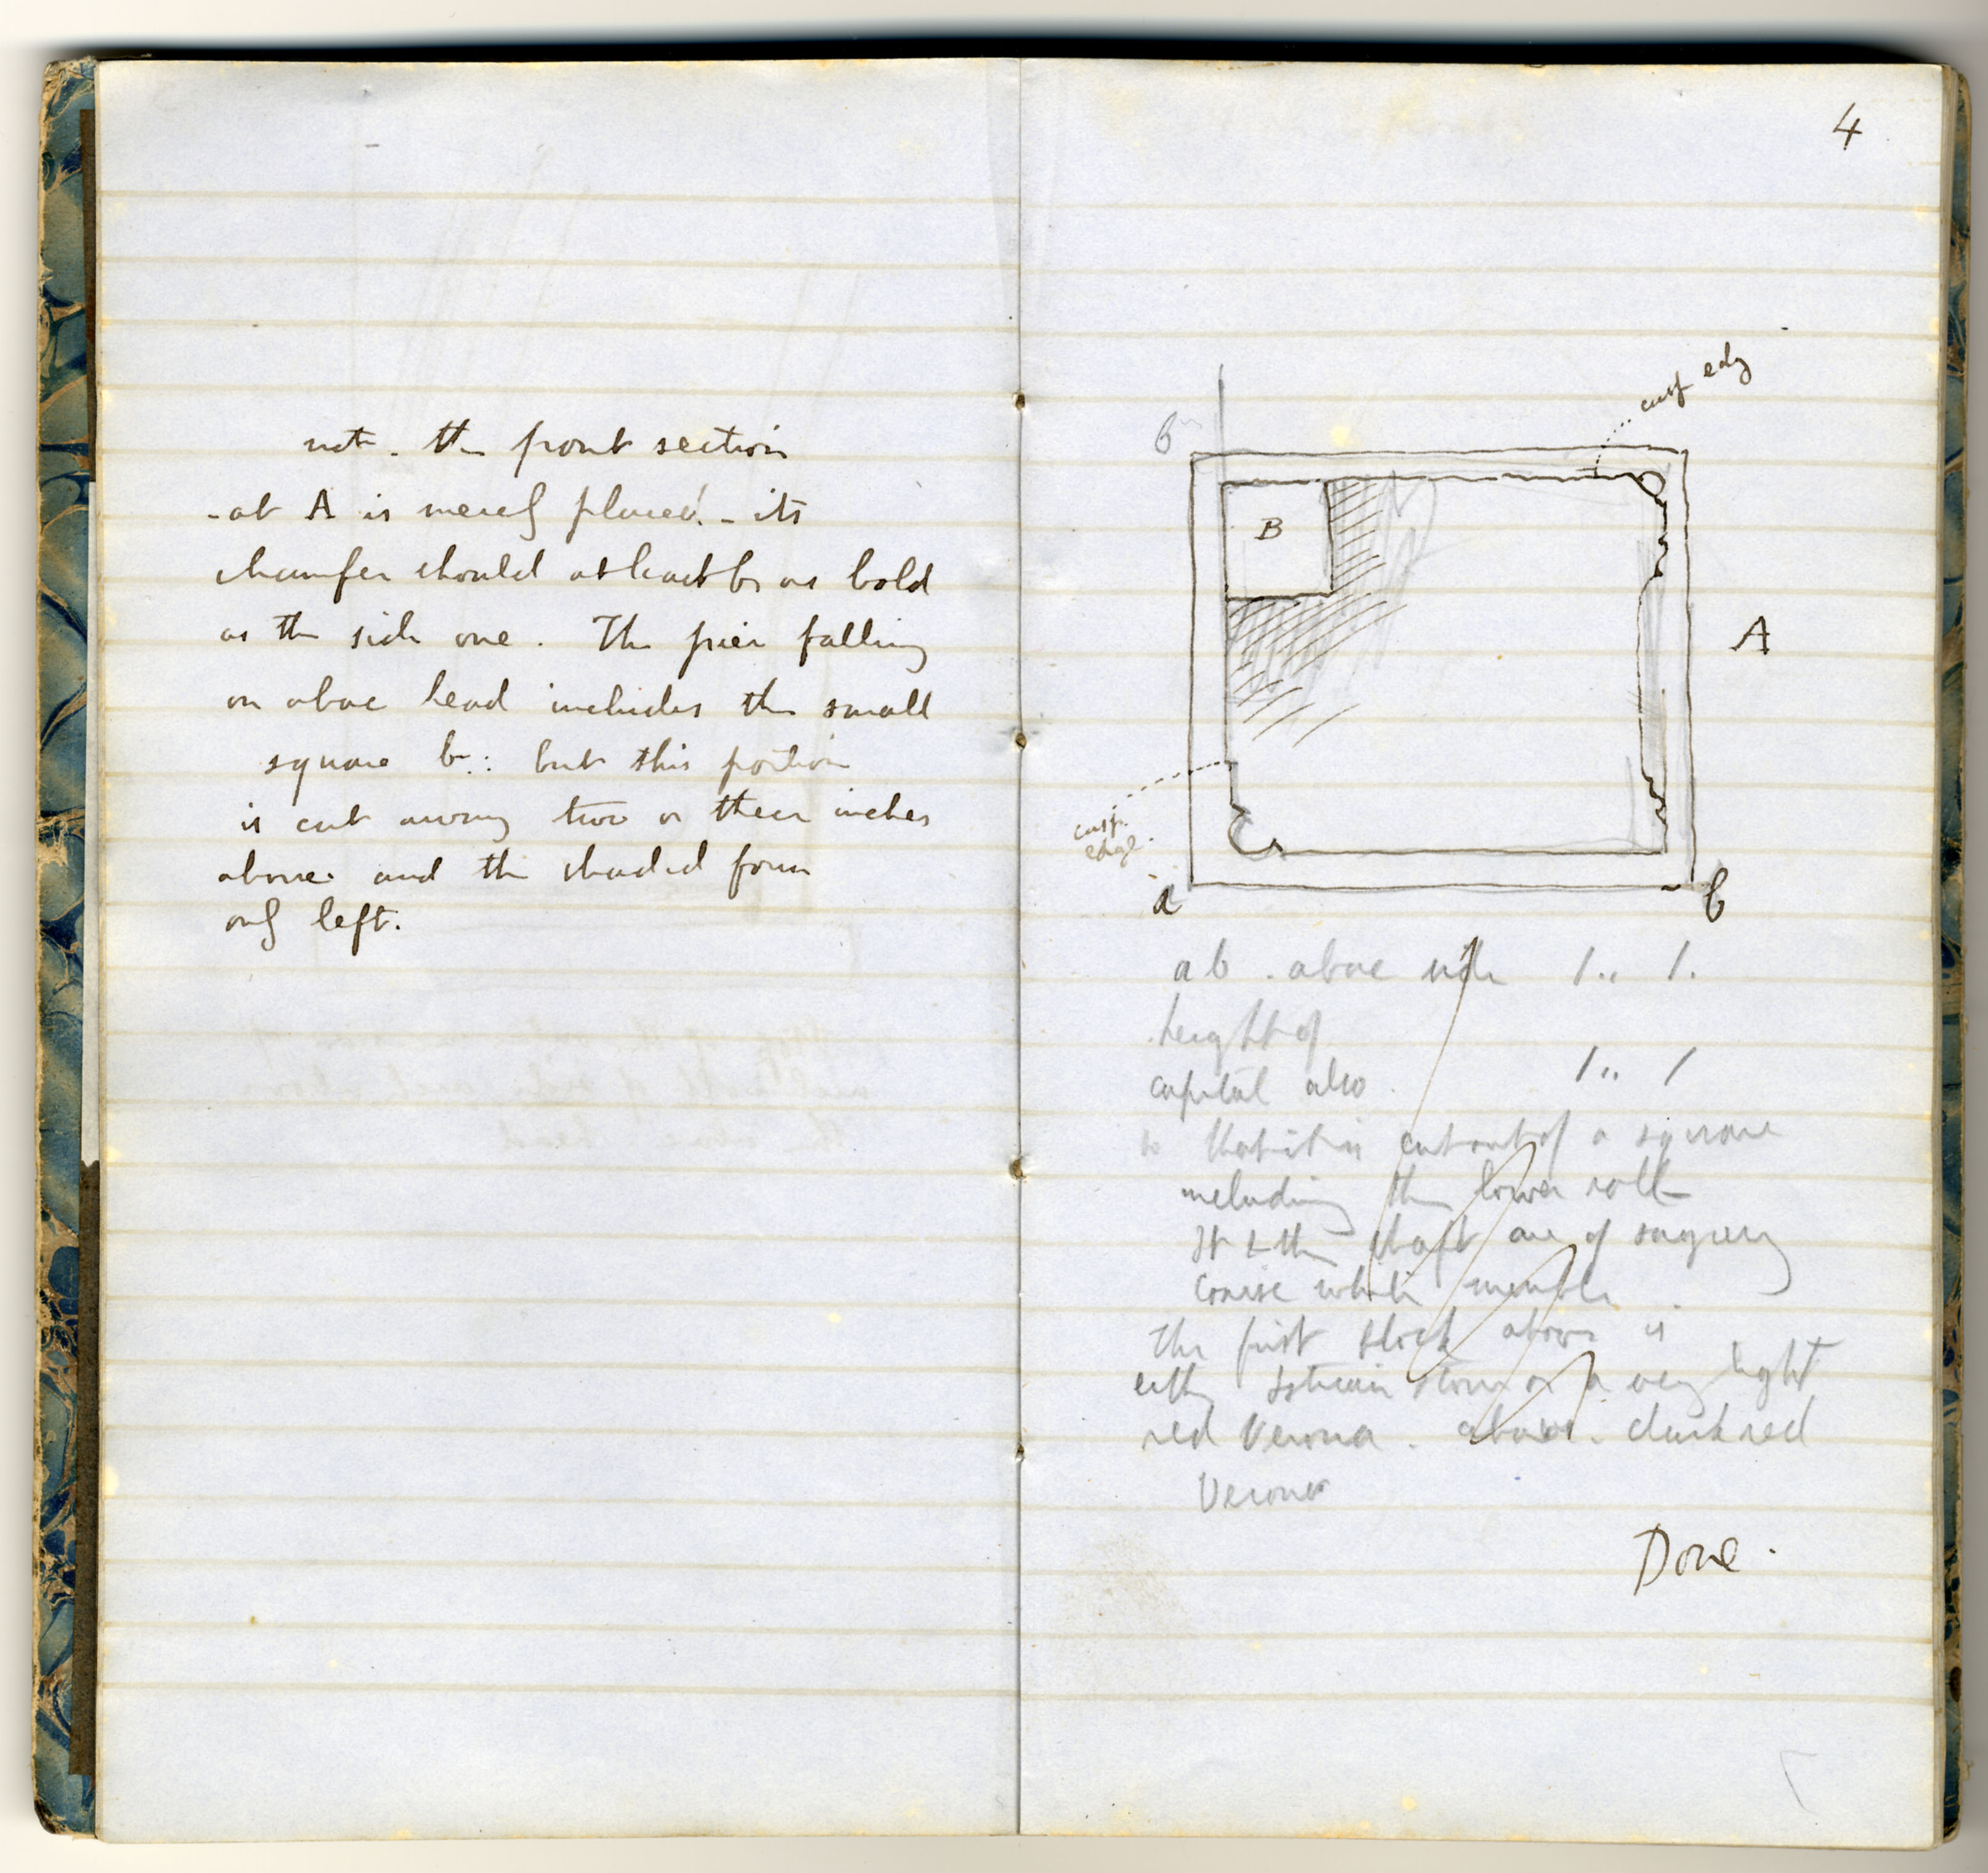 note - the front section
- at A is merely placed - its
chamfer should at least be as bold
as the side one. The pier falling
on abac head includes the small
square b: but this portion
is cut away two or three inches
above and the shaded form
only left.
4
cusp edg
b
B
A
cusp.
edge.
a
b
ab . abac side 1.. 1.
height of
capital also 1.. 1
so that it is cut out of a square
including the lower roll -
It & the shaft are of sugary
coarse white marble
The first block above is
either Istrian stone or a very light
red Verona . above . dark red
Verona
Done .